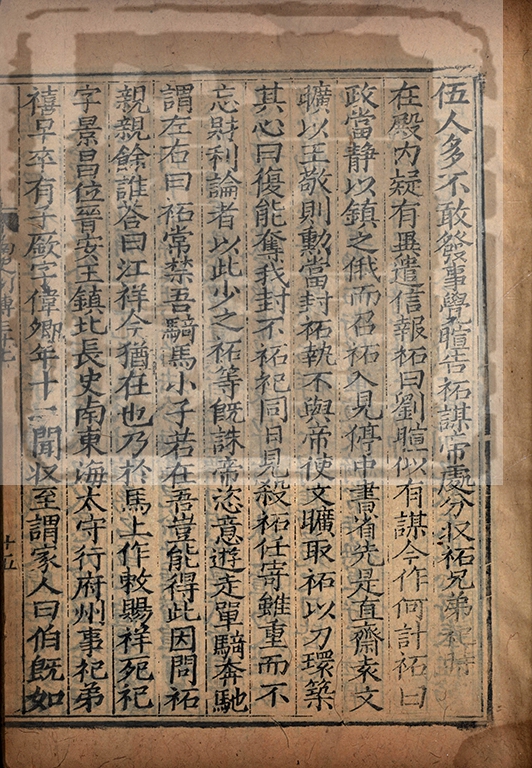 伍人多不敢發事覺暄告祏謀帝處分収祏兄弟祀時
在殿内疑有異遣信報祏曰劉暄似有謀今作何計祏曰
政當静以鎮之俄而召祏入見停中書省先是直齋袁文
曠以王敬則勲當封祏執不與帝使文曠取祏以刀環築
其心曰復能奪我封不祏祀同日見殺祏任寄雖重而不
忘財利論者以此少之祏等既誅帝恣意遊走單騎奔馳
謂左右曰祏常禁吾騎馬小子若在吾豈能得此因問祏
親親餘誰荅曰江祥今猶在也乃於馬上作敕賜祥死祀
字景昌位晉安王鎮北長史南東海太守行府州事祀弟
禧早卒有子廞字偉卿年十二聞収至謂家人曰伯既如
十五